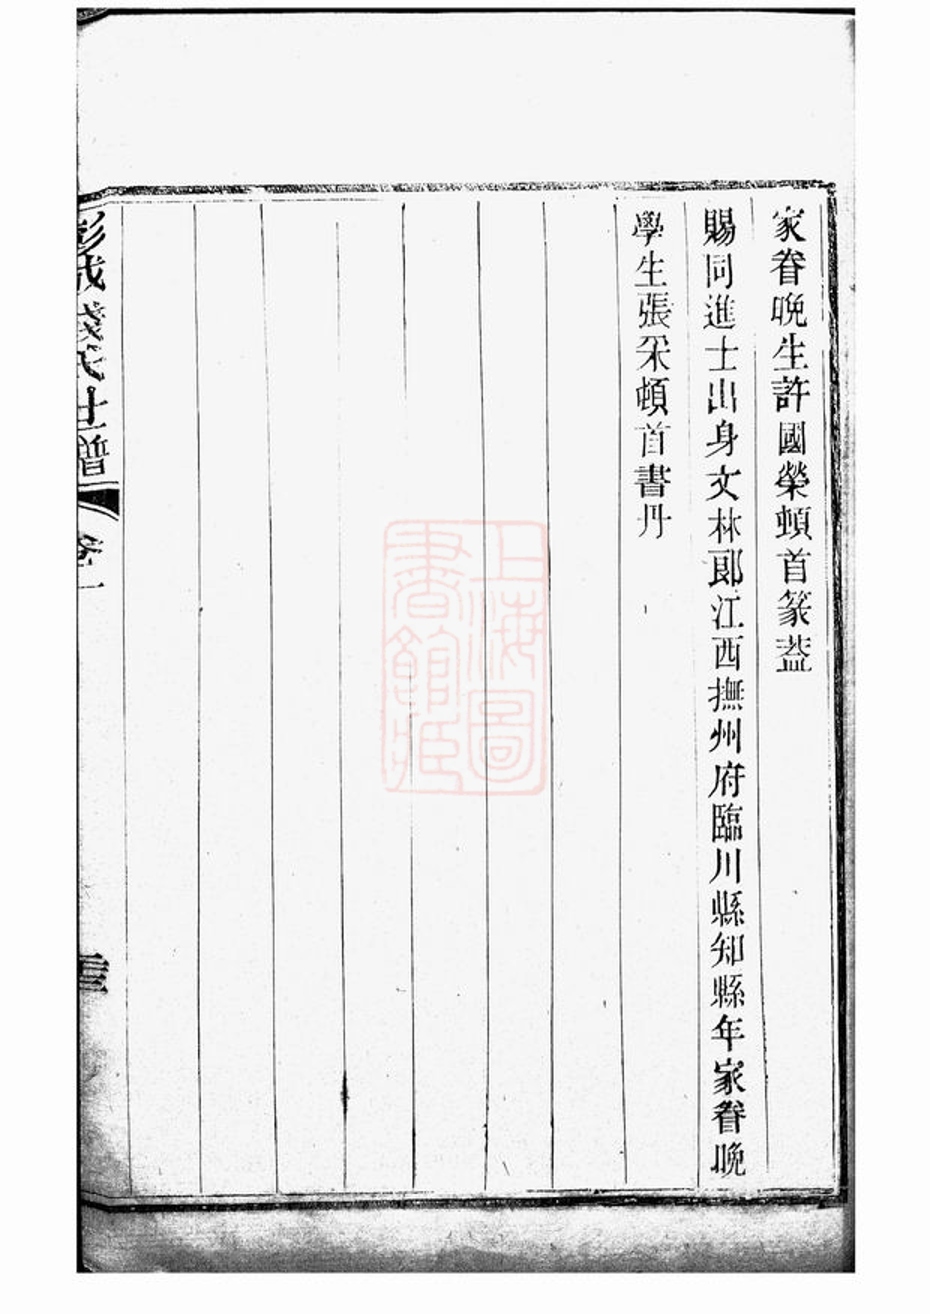 家眷晚生許國榮頓首篆葢
賜同進士出身文林郎江西撫州府臨川縣知縣年家眷晚
學生張采頓首書丹
彭城錢氏世譜
卷一
上海圖
書館藏